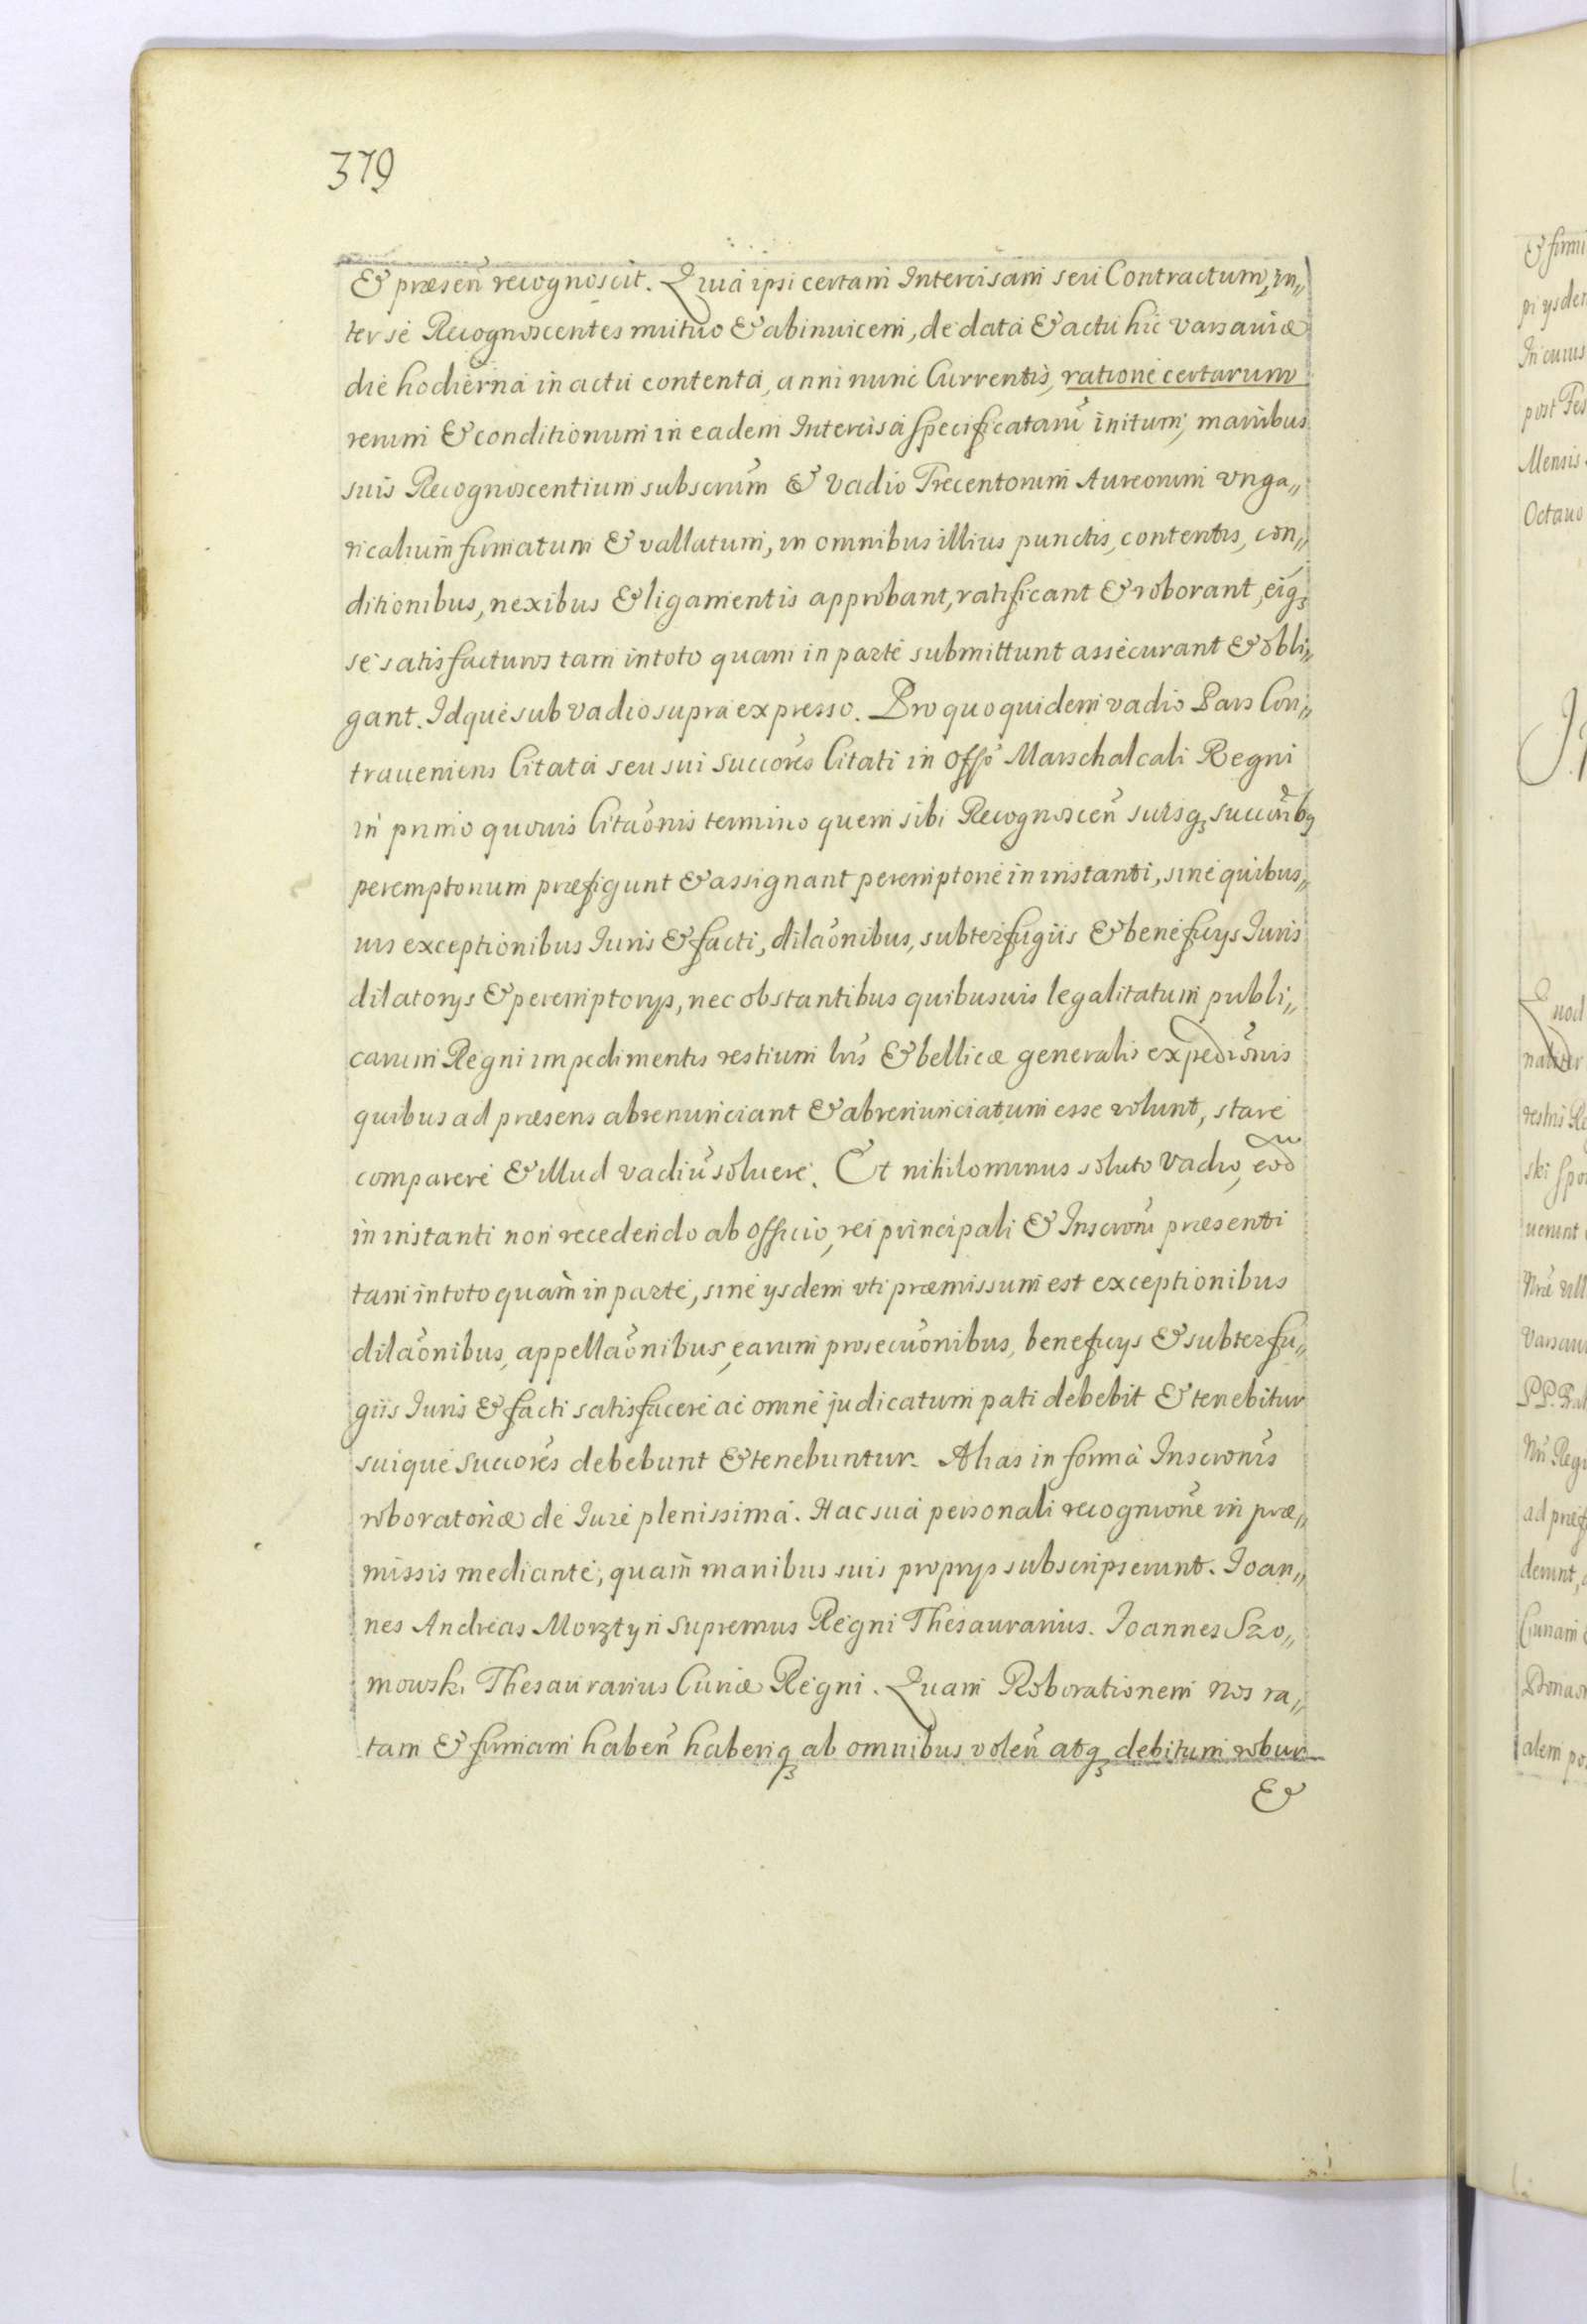 379
& præseñ recognoscit. Quià ipsi certam Intercisam seu Contractum, in„
ter se Recognoscentes mutuo & abinuicem, de data & actu hic varsauiæ
die hodierna in actu contenta, anni nunc Currentis, ratione certarum
rerum & conditionum in eadem Intercisa specificatarũ initum, manibus
suis Recognoscentium subscrũm & vadio Trecentorum Aureorum vnga„
ricalium firmatum & vallatum, in omnibus illius punctis, contentis, con„
ditionibus, nexibus & ligamentis approbant, ratificant & roborant, eiq₃
se satisfacturos tam in toto quam in parte submittunt assecurant & obli„
gant. Idque sub vadio supra expresso. Pro quo quidem vadio Pars Con„
traueniens Citata seu sui Succores Citati in Offo Marschalcali Regni
in primo quouis Citaõnis termino quem sibi Recognosceñ suisq₃ succoribq
peremptorium præfigunt & assignant peremptorie in instanti, sine quibus„
uis exceptionibus Iuris & facti, dilaõnibus, subterfugiis & beneficys Iuris
dilatorys & peremptorys, nec obstantibus quibusuis legalitatum publi„
carum Regni impedimentis restium lris & bellicæ generalis expediõnis
quibus ad præsens abrenunciant & abrenunciatum esse volunt, stare
comparere & illud vadiũ soluere. Et nihilominus soluto vadio, eod
in instanti non recedendo ab officio, rei principali & Inscroni præsenti
tam in toto quam in parte, sine ysdem vti præmissum est exceptionibus
dilaõnibus, appellaõnibus, earum prosecuõnibus, beneficys & subterfu„
giis Iuris & facti satisfacere ac omne judicatum pati debebit & tenebitur
suique Succores debebunt & tenebuntur. Alias in forma Inscronis
roboratoriæ de Iure plenissima. Hac sua personali recognione in præ„
missis mediante, quam manibus suis proprys subscripserunt. Ioan„
nes Andreas Morztyn Supremus Regni Thesaurarius. Ioannes Szo„
mowski Thesaurarius Curiæ Regni. Quam Roborationem Nos ra„
tam & firmam habeñ haberiq₃ ab omnibus voleñ atq₃ debitum robur
&